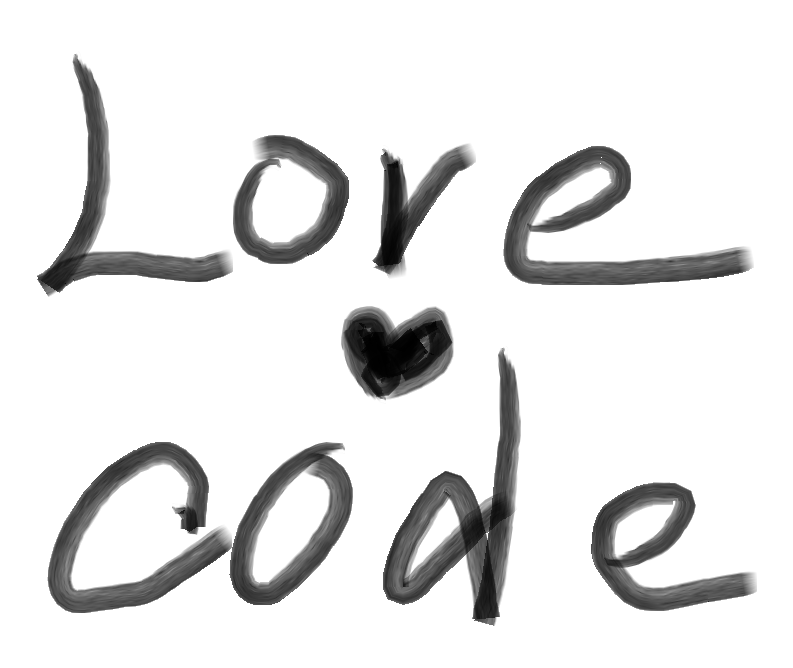 Love
code